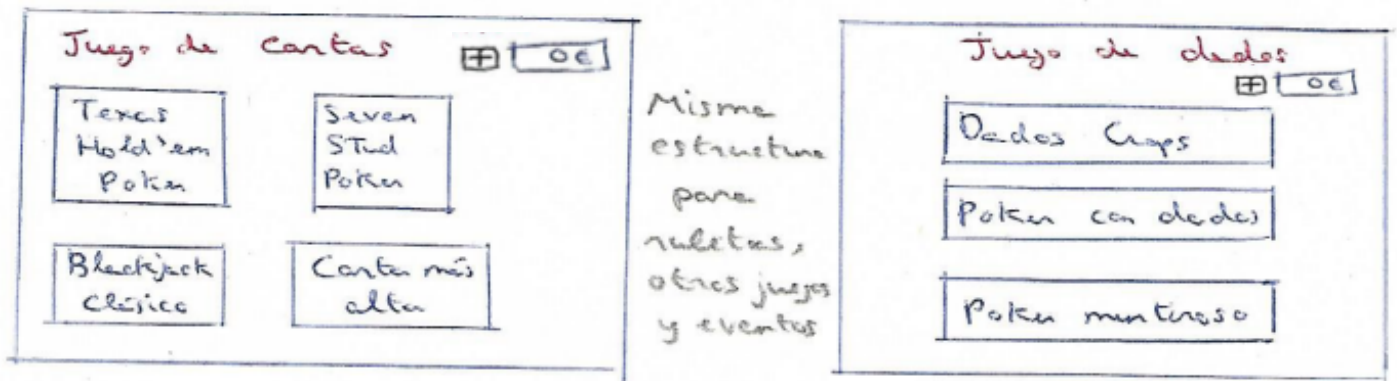 Juego de cartas
+ 0€
Texas
Hold'em
Poker
Seven
STud
Poker
Blackjack
Clásico
Carta más
alta
Misma
estructura
para
ruletas,
otros juegos
y eventos
Juego de dados
+ 0€
Dados Craps
Poker con dados
Poker mentiroso